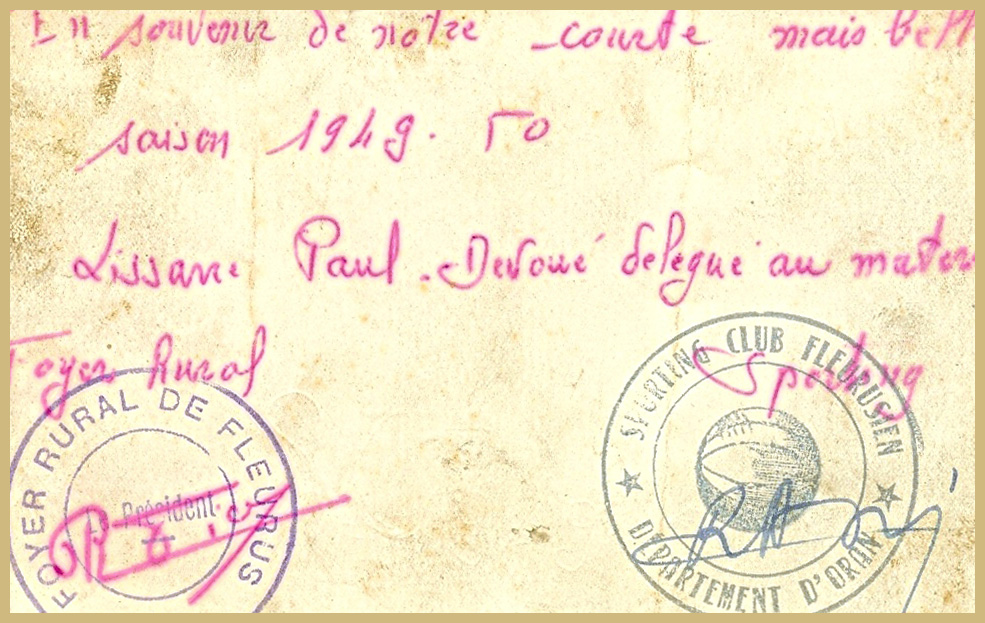 En souvenir de notre courte mais bell
saison 1949. 50
Lissarre Paul. Devoué delegué au mater
Foyer Rural
Sporting
FOYER RURAL DE FLEURUS
Président
SPORTING CLUB FLEURUSIEN
DÉPARTEMENT D'ORAN